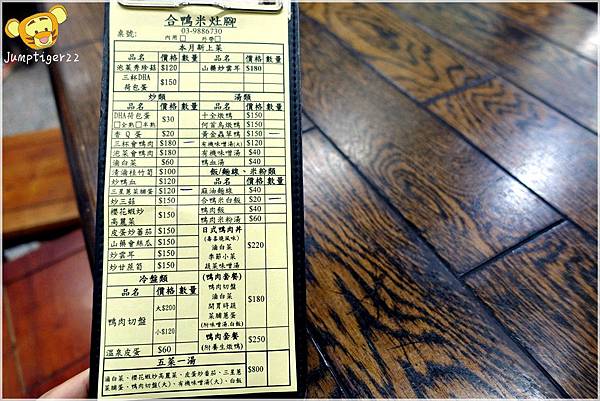 Jumptiger22
合鴨米灶腳
03-9886730
桌號:
內用 外帶
本月新上菜
品名 價格 數量 品名 價格 數量
泡菜秀珍菇 $120 山藥炒雲耳 $180
三杯DHA荷包蛋 $150
炒類 湯類
品名 價格 數量 品名 價格 數量
DHA荷包蛋 $30 十全燉鴨 $150
□全熟□半熟 何首烏燉鴨 $150
香Q蛋 $20 黃金蟲草鴨 $150 一
三杯會鴨肉 $180 一 有機味噌湯(大) $120
泡菜會鴨肉 $180 有機味噌湯 $40
滷白菜 $60 鴨血湯 $40
清滷桂竹筍 $100 飯/麵線、米粉類
炒鴨血 $120 品名 價格 數量
三星蔥菜脯蛋 $120 一 麻油麵線 $40
炒三菇 $150 合鴨米白飯 $20 一
櫻花蝦炒高麗菜 $150 鴨肉飯 $40
鴨肉米粉湯 $60
皮蛋炒番茄 $150 日式鴨肉丼
山藥會絲瓜 $150 (壽喜燒風味)
炒雲耳 $150 滷白菜 $220
炒甘蔗筍 $150 季節小菜
蔬菜味噌湯
冷盤類 (鴨肉套餐)
品名 價格 數量 鴨肉切盤
滷白菜
鴨肉切盤 大$200 開胃時蔬 $180
菜脯蔥蛋
小$120 (附味噌湯,白飯)
(鴨肉套餐) $250
溫泉皮蛋 $60 (附養生燉鴨)
五菜一湯
滷白菜、櫻花蝦炒高麗菜、皮蛋炒番茄、三星蔥 $800
菜脯蛋、鴨肉切盤(大)、有機味噌湯(大)、白飯